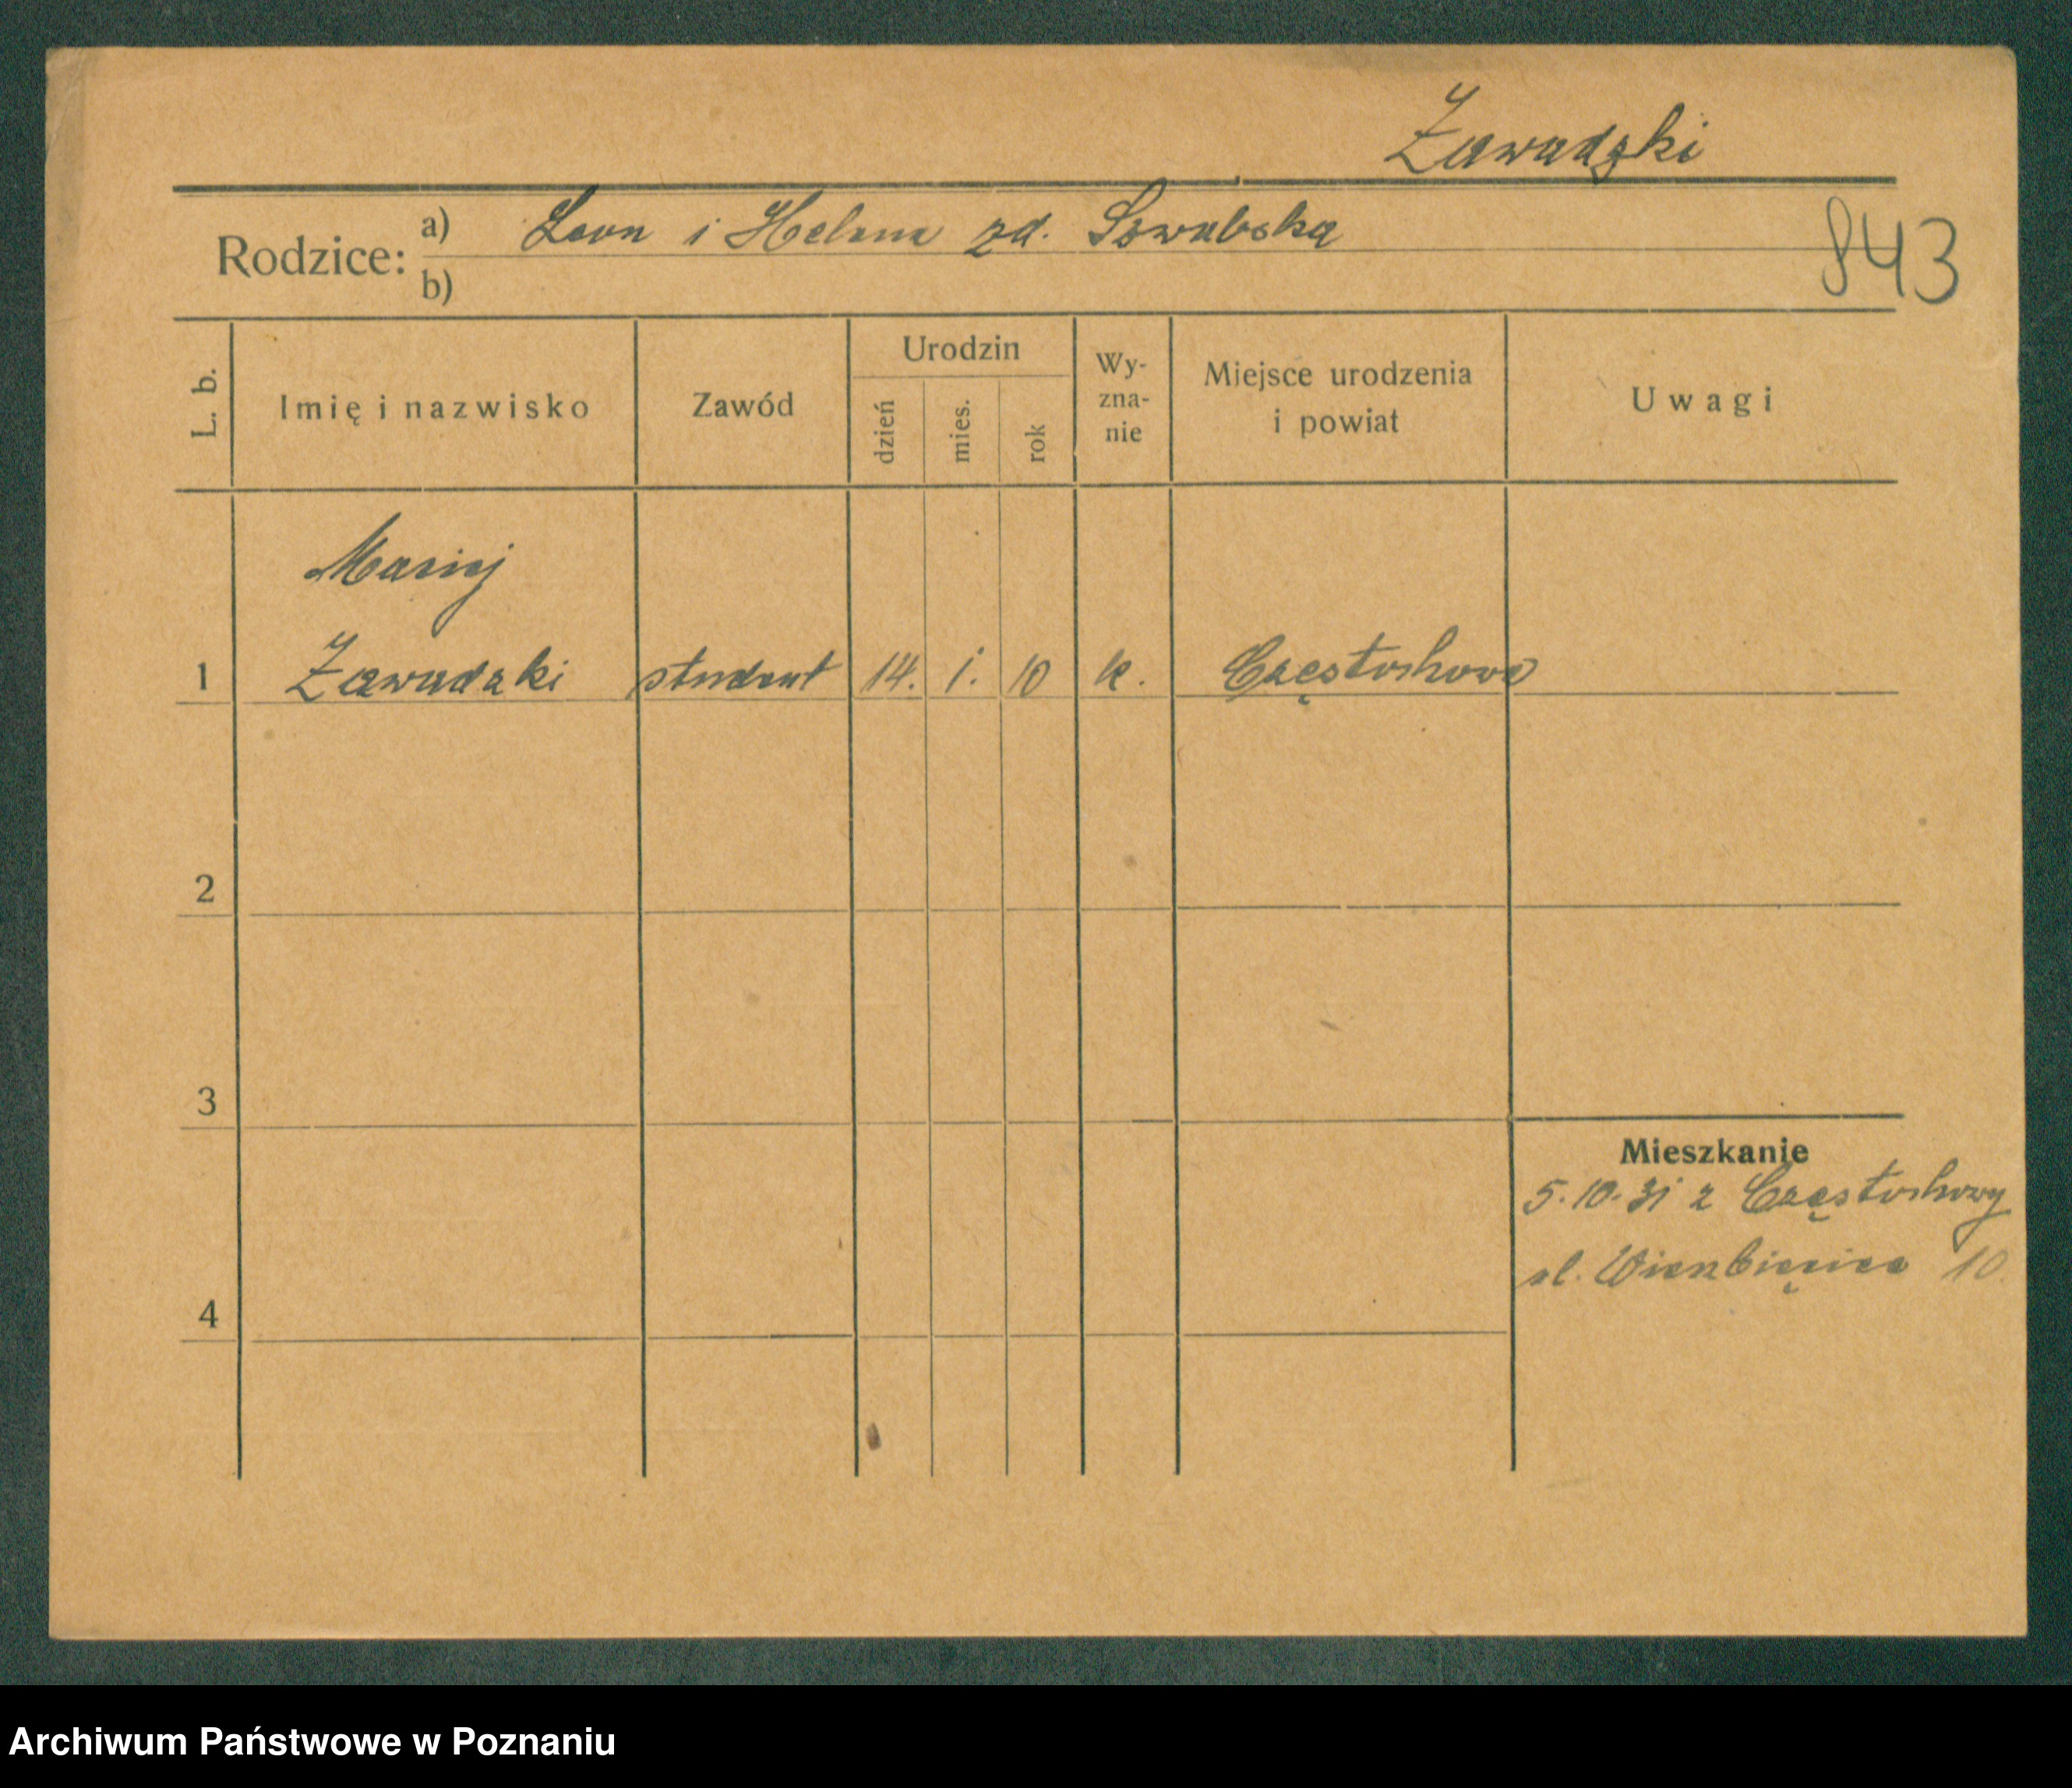 Zawadzki
Rodzice: a) Leon i Helena zd. Szwabska
843
b)
L. b.
Imię i nazwisko
Zawód
Urodzin
dzień
mies.
rok
Wy-
zna-
nie
Miejsce urodzenia
i powiat
Uwagi
Maciej
1 Zawadzki student 14. 1. 10 k. Częstochowa
2
3
Mieszkanie
5.10.31 z Częstochowy
ul. Wierzbięcice 10
4
Archiwum Państwowe w Poznaniu